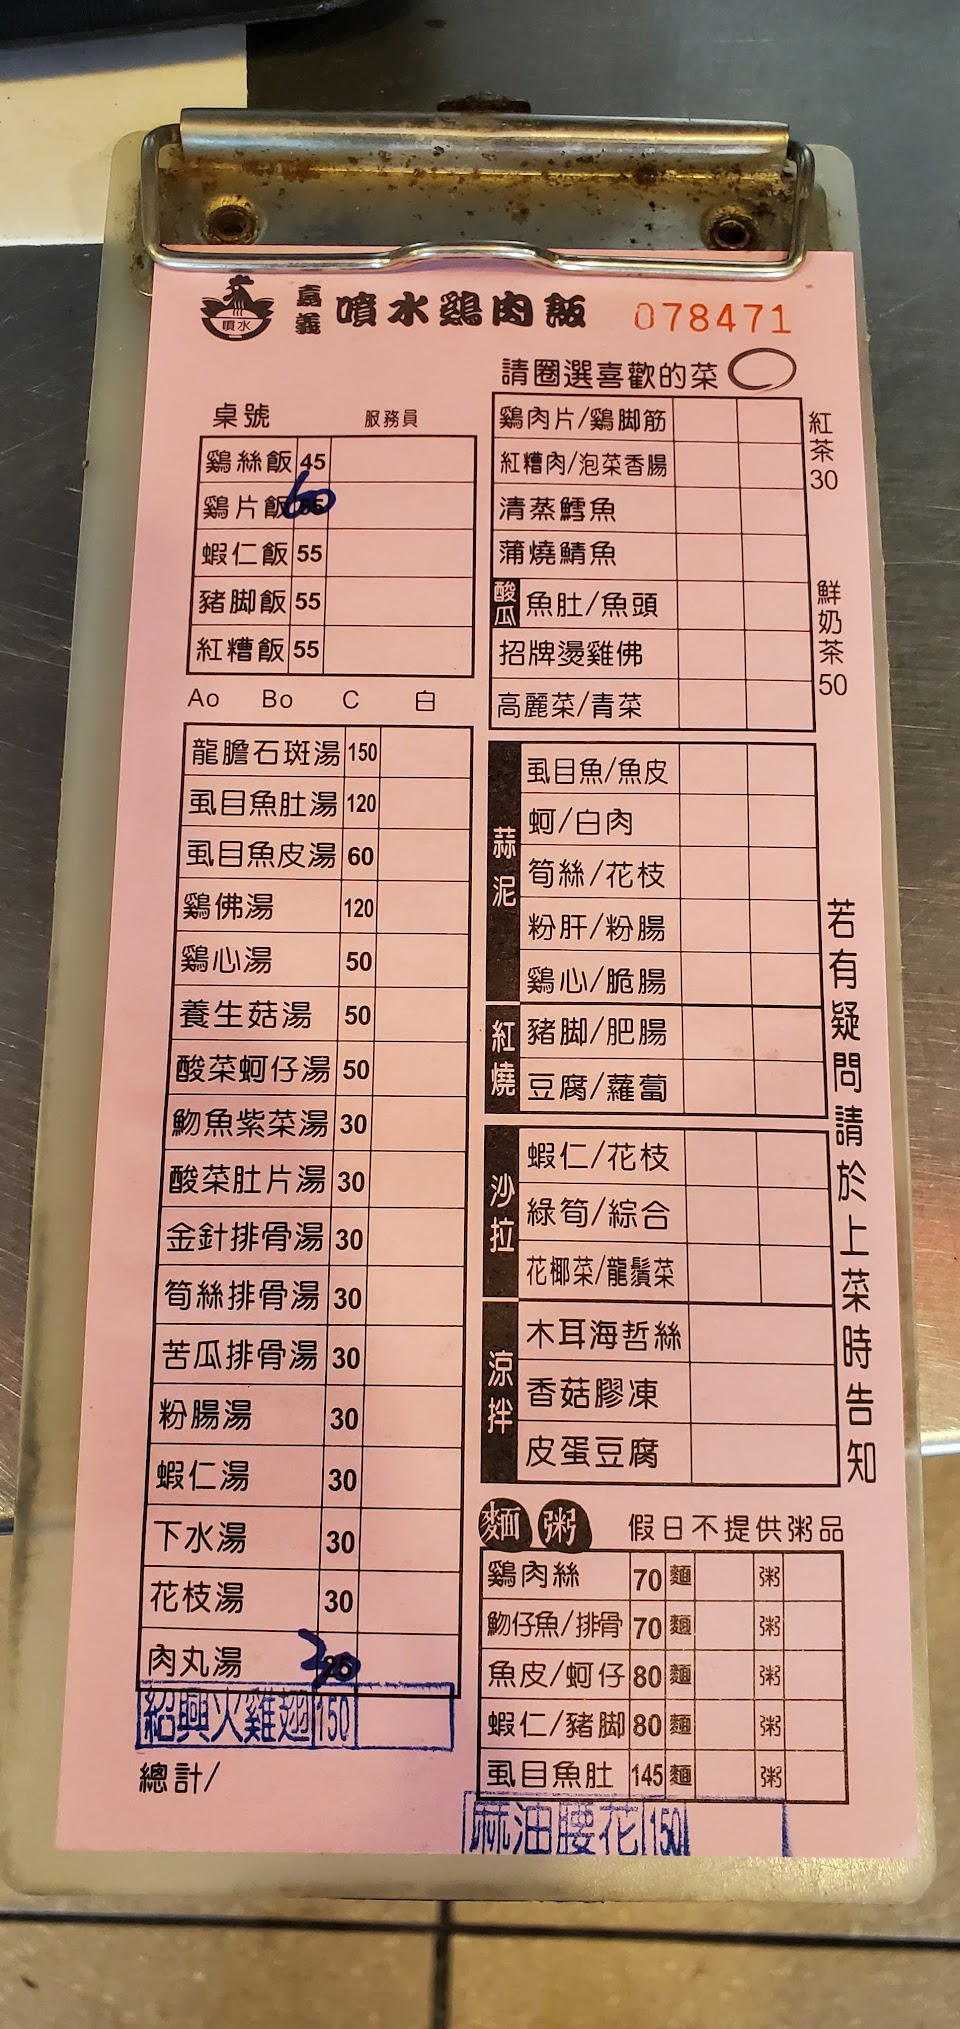 噴水
嘉義 噴水鷄肉飯 078471
請圈選喜歡的菜
桌號 服務員
鷄絲飯 45
鷄片飯 60
蝦仁飯 55
豬脚飯 55
紅糟飯 55
Ao Bo C 白
龍膽石斑湯 150
虱目魚肚湯 120
虱目魚皮湯 60
鷄佛湯 120
鷄心湯 50
養生菇湯 50
酸菜蚵仔湯 50
魩魚紫菜湯 30
酸菜肚片湯 30
金針排骨湯 30
筍絲排骨湯 30
苦瓜排骨湯 30
粉腸湯 30
蝦仁湯 30
下水湯 30
花枝湯 30
肉丸湯 30
紹興火雞翅 150
總計/
鷄肉片/鷄脚筋
紅糟肉/泡菜香腸
清蒸鱈魚
蒲燒鯖魚
酸瓜 魚肚/魚頭
招牌燙雞佛
高麗菜/青菜
紅茶30
鮮奶茶50
蒜泥
虱目魚/魚皮
蚵/白肉
筍絲/花枝
粉肝/粉腸
鷄心/脆腸
紅燒
豬脚/肥腸
豆腐/蘿蔔
沙拉
蝦仁/花枝
綠筍/綜合
花椰菜/龍鬚菜
涼拌
木耳海哲絲
香菇膠凍
皮蛋豆腐
若有疑問請於上菜時告知
麵 粥 假日不提供粥品
鷄肉絲 70 麵 粥
魩仔魚/排骨 70 麵 粥
魚皮/蚵仔 80 麵 粥
蝦仁/豬脚 80 麵 粥
虱目魚肚 145 麵 粥
麻油腰花 150